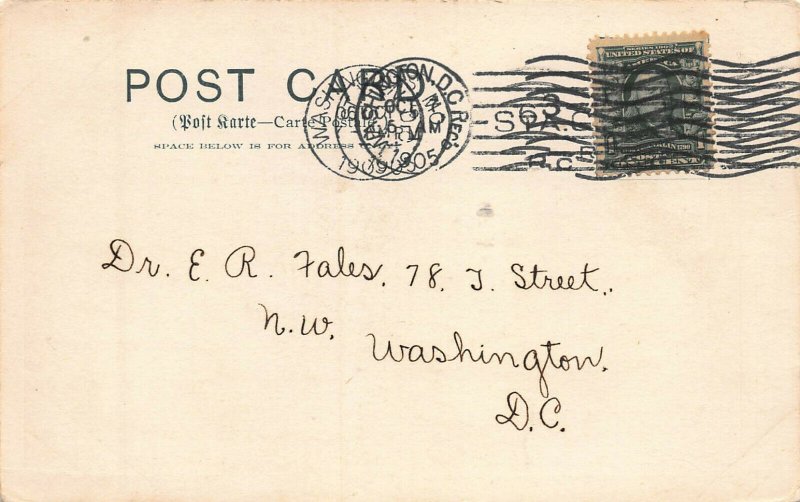 POST CARD
(Post Karte—Carte Postale
SPACE BELOW IS FOR ADDRESS
WASHINGTON, D.C.
OCT
AM
1905
STA. C
SERIES 1902
UNITED STATES OF
AMERICA
Dr. E. R. Fales, 78, T. Street,.
N.W.
Washington,
D.C.